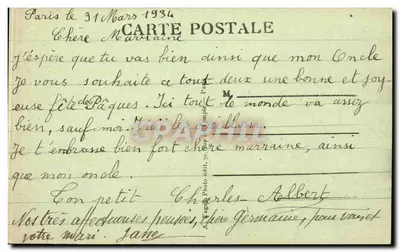 Paris le 31 Mars 1934
CARTE POSTALE
Chère Marraine
J'espère que tu vas bien ainsi que mon Oncle
Je vous souhaite a tous deux une bonne et joy
euse fête de Pâques. Ici tout le monde va assez
M
bien, sauf moi. J'ai le
Je t'embrasse bien fort chère marraine, ainsi
que mon oncle.
Ton petit Charles Albert
Nos très affectueuses pensées, chère Germaine, pour vous et
votre mari. Jane